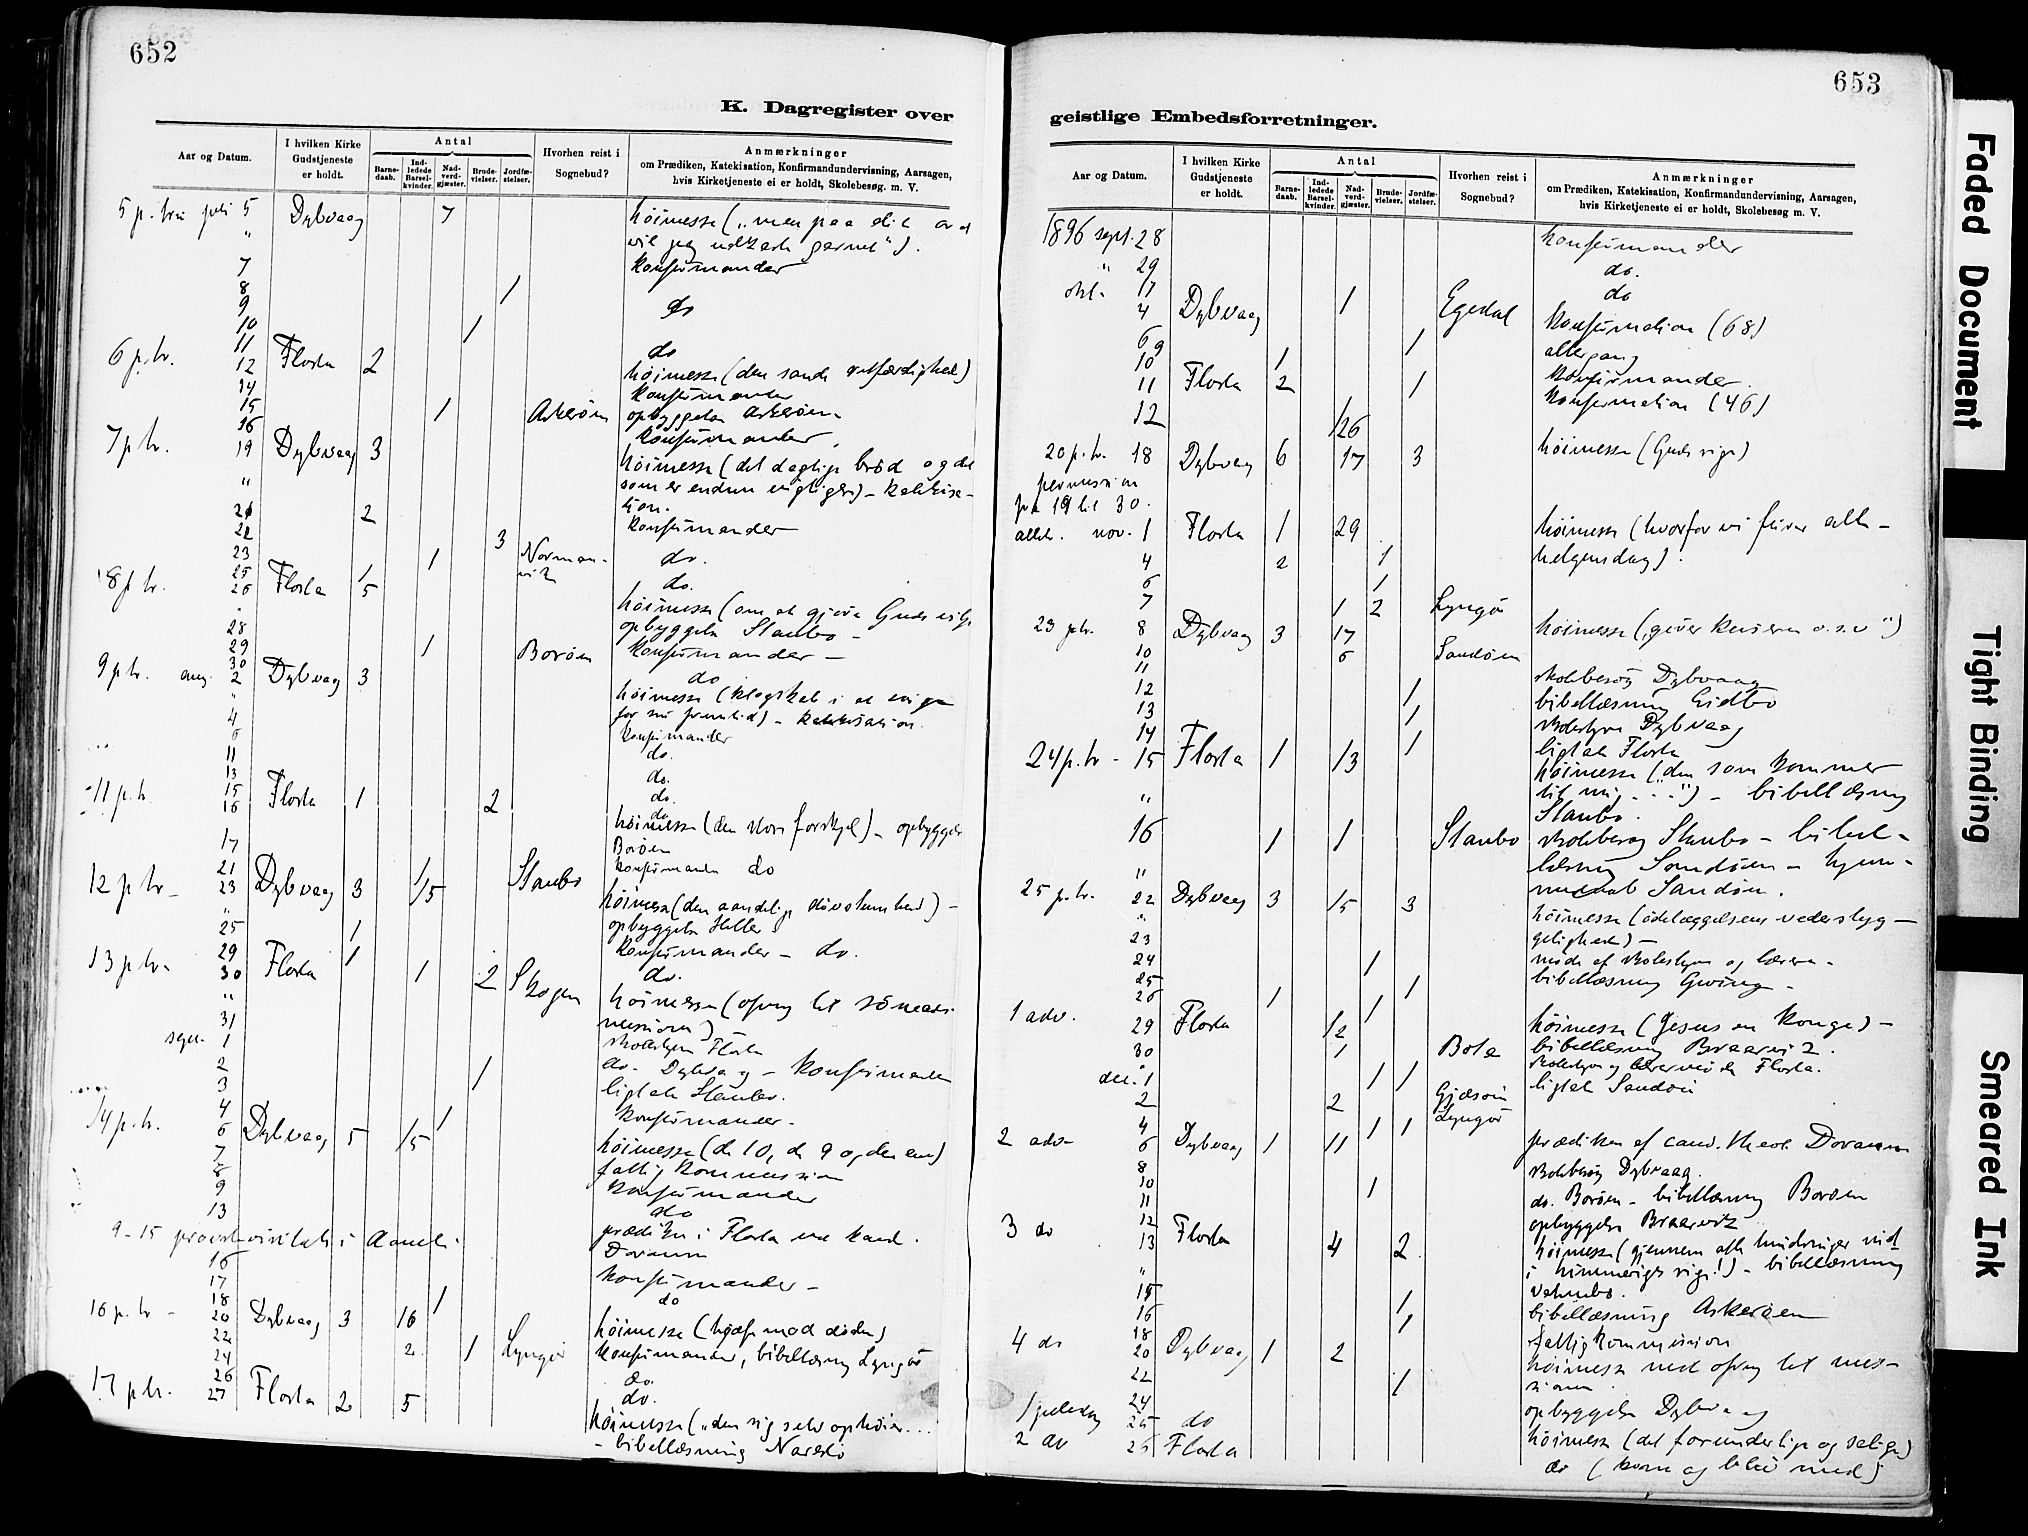 652
K. Dagregister over
Aar og Datum.
I hvilken Kirke Gudstjeneste er holdt.
Antal
Barnedaab.
Indledede Barselkvinder.
Nadverdgjæster.
Brudevielser.
Jordfæstelser.
Hvorhen reist i Sognebud?
Anmærkninger
om Prædiken, Katekisation, Konfirmandundervisning, Aarsagen,
hvis Kirketjeneste ei er holdt, Skolebesøg m. V.
5 p. juli 5 Dybvaag 7 høimesse („men paa dit ord
vil jeg garnet").
7 konfirmander
8 1
9 do
10 1
11 do
6 p. tr. 12 Flosta 2 høimesse (den sande retfærdighed)
14 konfirmander
15 1 Askerøen opbyggelse Askerøen
16 konfirmander
7 p. tr. 19 Dybvaag 3 høimesse (det daglige brød og det
som er endnu vigtigere) – katekisa-
tion.
21 2 konfirmander
22 3
23 1 Norman-
vik do.
25 1 do.
8 p. tr. 26 Flosta 5 høimesse (om at gjøre Guds vilje
opbyggelse Staubo –
28 konfirmander –
29 1 Borøen
30 do
9 p. tr. aug. 2 Dybvaag 3 høimesse (klogskab i at sørge
for sin fremtid) – katekisation.
4 konfirmander
6 do.
11 do.
13 do.
15 do
11 p. tr. 16 Flosta 1 2 høimesse (den store forskjel) – opbyggelse
Borøen
17 konfirmander do
21 1 Staubo
12 p. tr – 23 Dybvaag 3 15 høimesse (den aandelige døvstumhed) –
opbyggelse
25 1 konfirmander – do.
29 1 do.
13 p. tr – 30 Flosta 1 2 Skogen høimesse (
missionen)
31 skolestyre Flosta
sept. 1 do. Dybvaag – konfirmander
2 1 ligtale Staubo.
3 konfirmander –
4 1
14 p. tr. 6 Dybvaag 5 15 høimesse (de 10, de 9 og den ene)
7 fattigkommission
8 konfirmander
9 do
13 prædiken i Flosta ved kand.
9–15 provstevisitats i
16 konfirmander –
17 do
18 1
16 p. tr – 20 Dybvaag 3 16 høimesse (hjælp mod døden)
22 2 1 Lyngør konfirmander, bibellæsning Lyngør
24 do.
26 do.
17 p. tr. 27 Flosta 2 5 høimesse („den sig selv ophøier...
– bibellæsning Narestø
653
geistlige Embedsforretninger.
Aar og Datum.
I hvilken Kirke Gudstjeneste er holdt.
Antal
Barnedaab.
Indledede Barselkvinder.
Nadverdgjæster.
Brudevielser.
Jordfæstelser.
Hvorhen reist i Sognebud?
Anmærkninger
om Prædiken, Katekisation, Konfirmandundervisning, Aarsagen,
hvis Kirketjeneste ei er holdt, Skolebesøg m. V.
1896 sept. 28 konfirmander
" 29 do.
okt. do
4 Dybvaag 1 Egedal konfirmation (68)
6 altergang
9 1
10 1 konfirmander.
11 Flosta 2 1 konfirmation (46)
12 126
20 p. tr. 18 Dybvaag 6 17 3 høimesse (Guds rige)
permission
fra 19 til 30.
alleh. nov. 1 Flosta 1 29 høimesse (hvorfor vi feirer alle-
helgensdag).
4 2 1
6 1
7 1 2 Lyngør
23 p. tr. 8 Dybvaag 3 17 høimesse („giver keiseren o.s.v")
10 6 Sandøen
11 skolebesøg Dybvaag
12 1 bibellæsning Eidbo
13 1 skolestyre Dybvaag
14 1 ligtale Flosta
24 p. tr – 15 Flosta 1 13 høimesse („den som kommer
til mig...") – bibellæsning
Staubo.
16 1 1 Staubo skolebesøg Staubo – bibel-
læsning Sandøen –
Sandøen.
25 p. tr. 22 Dybvaag 3 15 3 høimesse (ødelæggelsens vederstyg-
gelighed) –
23 møde af skolestyre og lærere –
24 1 bibellæsning Gwing –
25 1
26 1 1
1 adv. 29 Flosta 12 høimesse (Jesus en konge) –
30 1 Bota bibellæsning Braarvik.
skolestyre og lærermøde Flosta.
dec. 1 1 1 ligtale Sandøen
2 2 Gjæsøen
Lyngør
4 1 1
2 adv – 6 Dybvaag 1 11 prædiken af cand. theol.
8 skolebesøg Dybvaag.
10 1 do. Borøen – bibellæsning Borøen
11 opbyggelse Braarvik
12
3 do 13 Flosta 4 2 høimesse (gjennem ind
i himmeriges rige!) – bibellæsning
15 1 bibellæsning Askerøen
16 1 fattigkommission
18
4 do 20 Dybvaag 1 2 høimesse med til mis-
sionen.
22 1
24 opbyggelse Dybvaag
1 juledag 25 do høimesse (det forunderlige og salige)
2 do 26 Flosta do (kom og bliv med)
Faded Document
Tight Binding
Smeared Ink